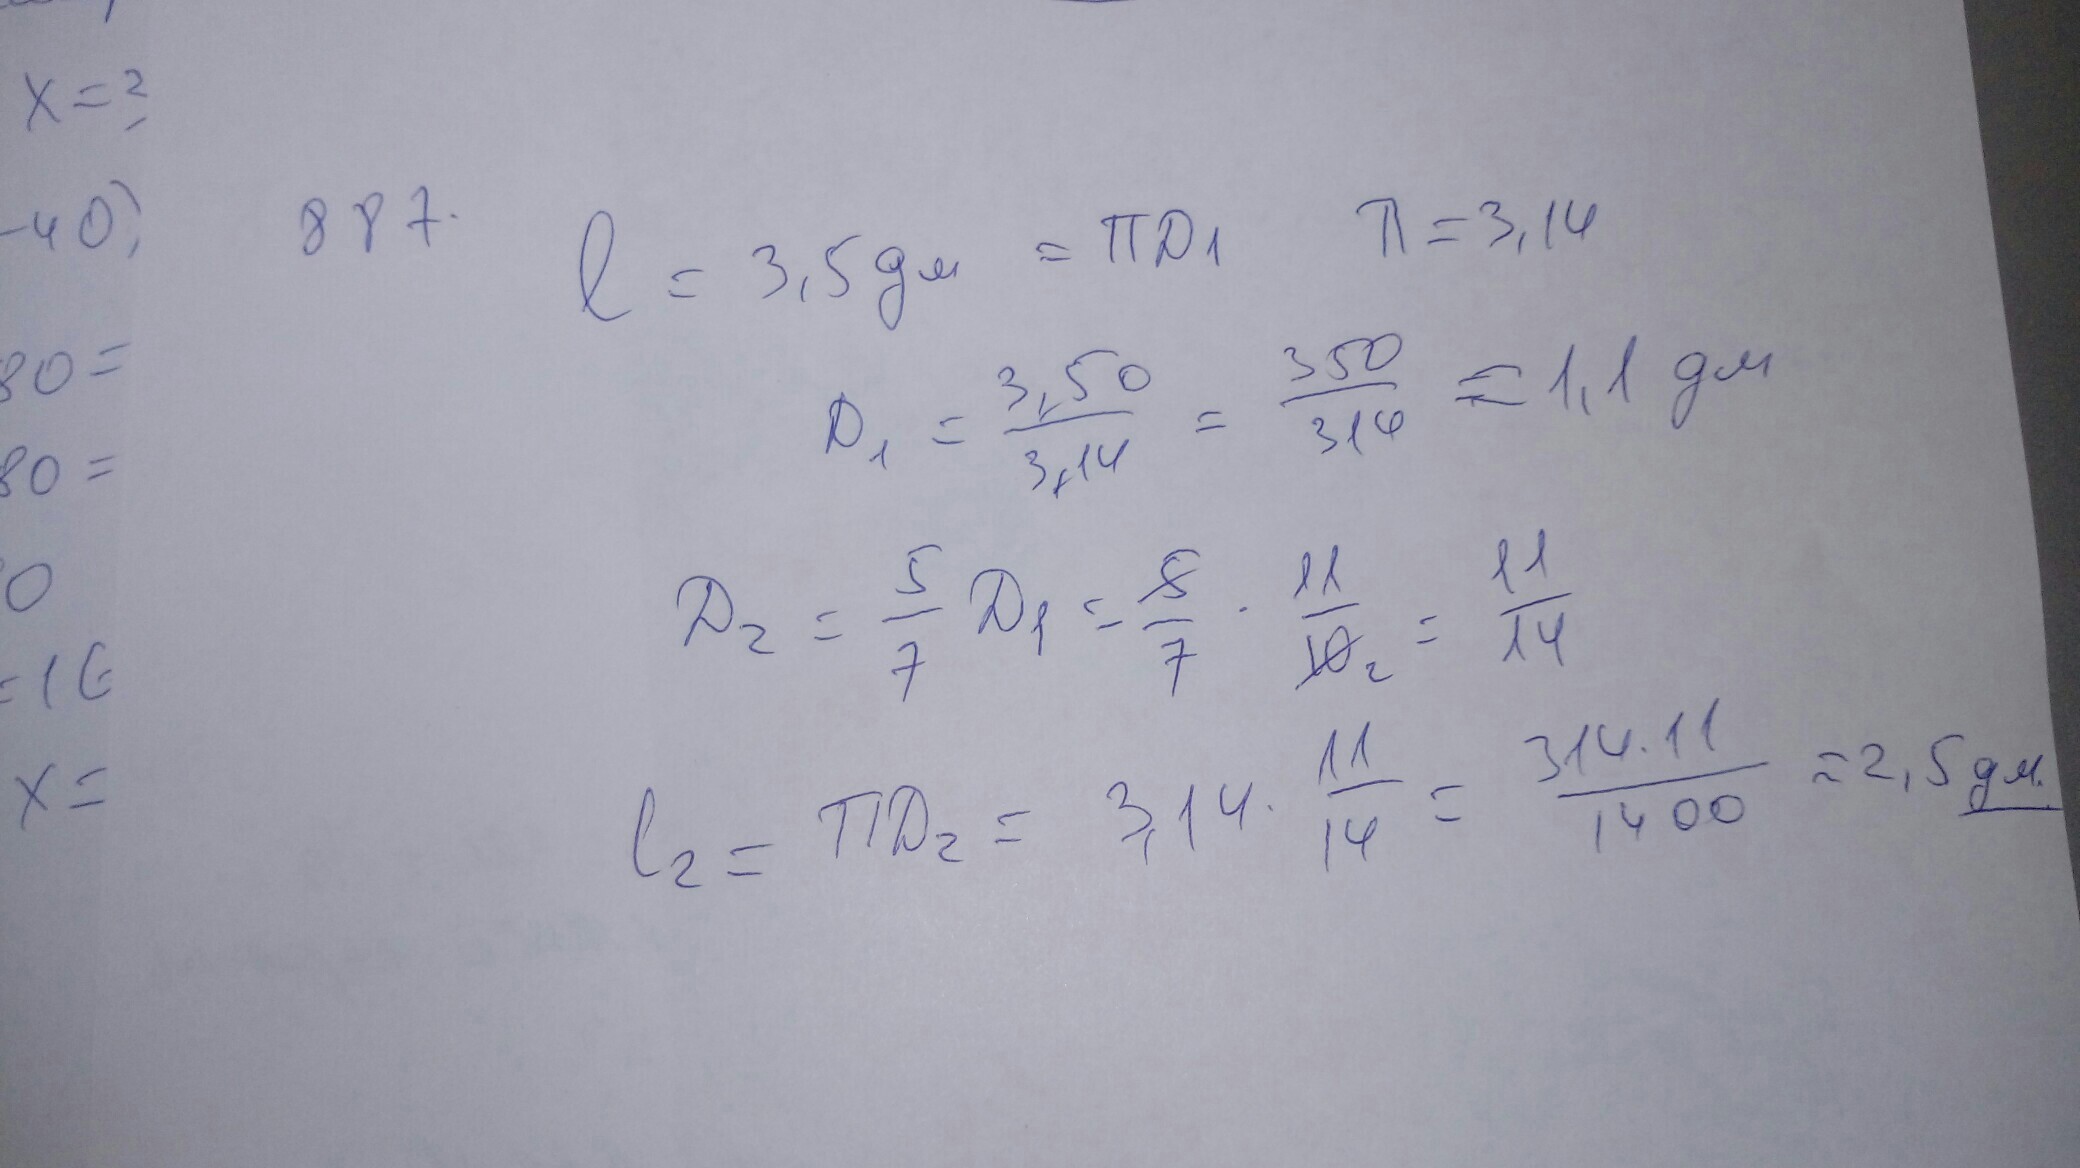 x=?
-40)
80=
80=
0
=16
x=
887.
l = 3,5 дм = πD1 π=3,14
D1 = 3,50/3,14 = 350/314 ≈ 1,1 дм
D2 = 5/7 D1 = 5/7 · 11/10 2 = 11/14
l2 = πD2 = 3,14 · 11/14 = 314·11/1400 ≈2,5 дм.